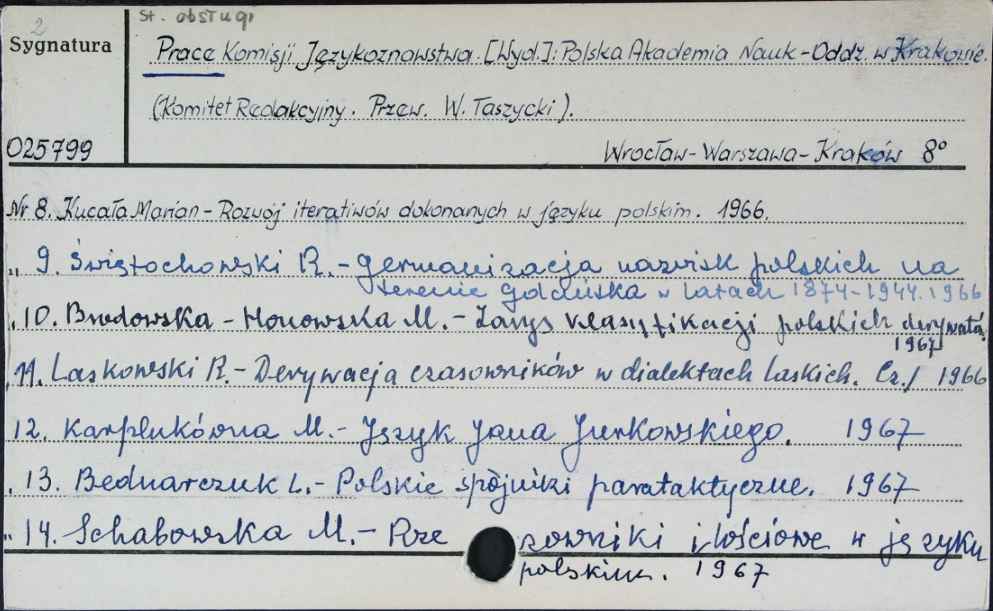 2
St. obsługi
Sygnatura
Prace Komisji Językoznawstwa. [Wyd.]: Polska Akademia Nauk - Oddz. w Krakowie.
(Komitet Redakcyjny. Przew. W. Taszycki).
025799
Wrocław - Warszawa - Kraków 8°
Nr 8. Kucała Marian - Rozwój iteratiwów dokonanych w języku polskim. 1966.
„ 9. Świętochowski R. - Germanizacja nazwisk polskich na
terenie Gdańska w latach 1874-1944. 1966
„ 10. Brodowska-Honowska M. - Zarys klasyfikacji polskich derywatów.
1967
„ 11. Laskowski R. - Derywacja czasowników w dialektach laskich. Cz. I 1966
„ 12. Karplukówna M. - Język Jana Jurkowskiego. 1967
„ 13. Bednarczuk L. - Polskie spójniki parataktyczne. 1967
„ 14. Schabowska M. - Rze zowniki ilościowe w języku
polskim. 1967